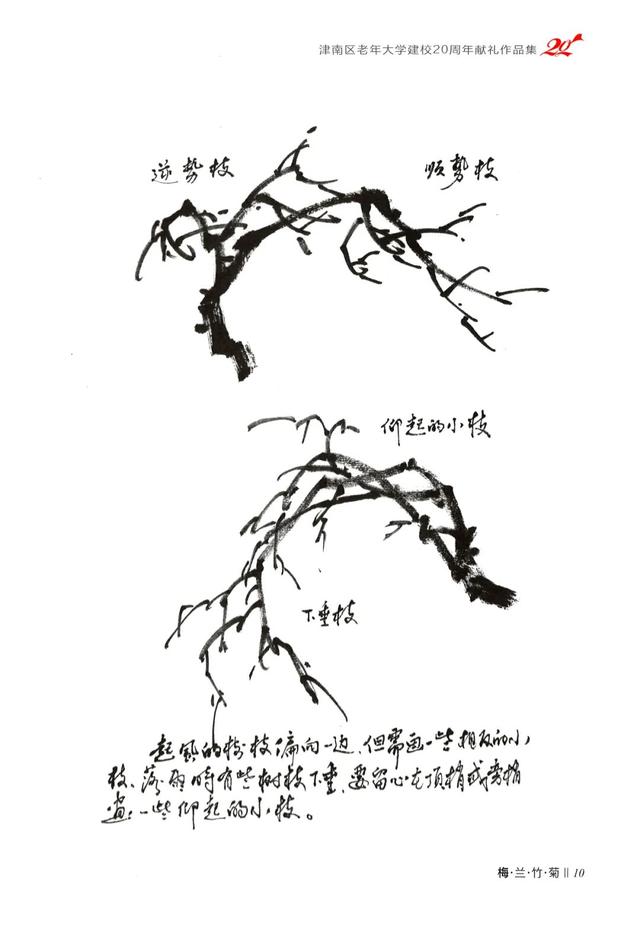 津南区老年大学建校20周年献礼作品集 20
逆势枝
顺势枝
仰起的小枝
下垂枝
起风的树枝偏向一边，但需画一些相反的小
枝、落雨时有些树枝下垂，要留心在顶梢或旁梢
画一些仰起的小枝。
梅·兰·竹·菊 || 10